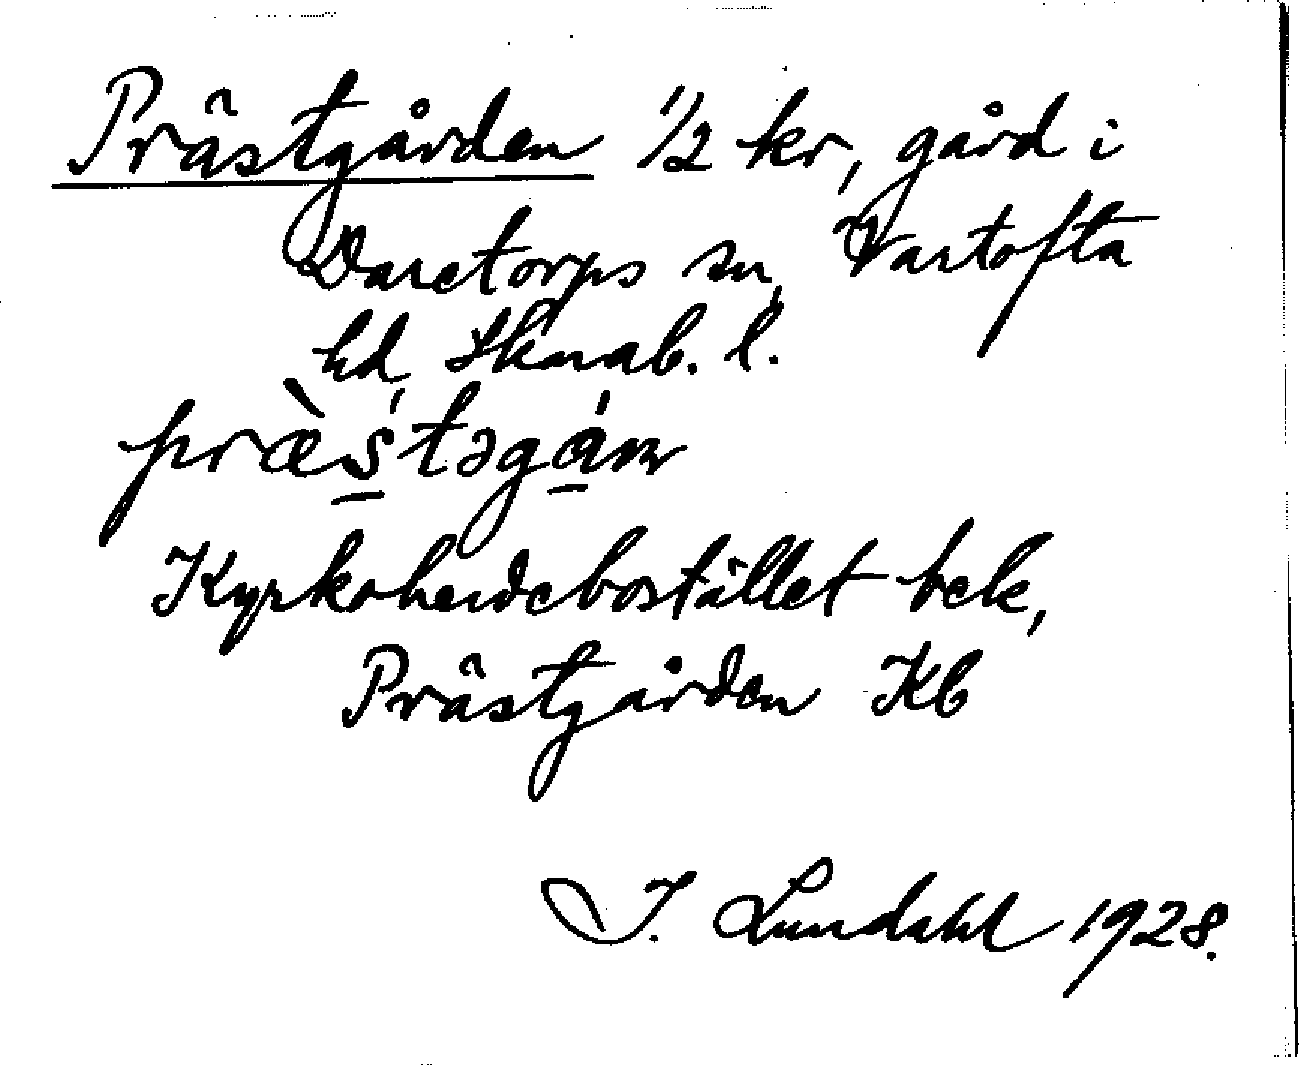 Prästgården 1/2 kr, gård i
Daretorps sn, Vartofta
hd, Skarab. l.
præ̀s̱təgá̱ɳ
Kyrkoherdebostället bek,
Prästgården Kb
I. Lundahl 1928.